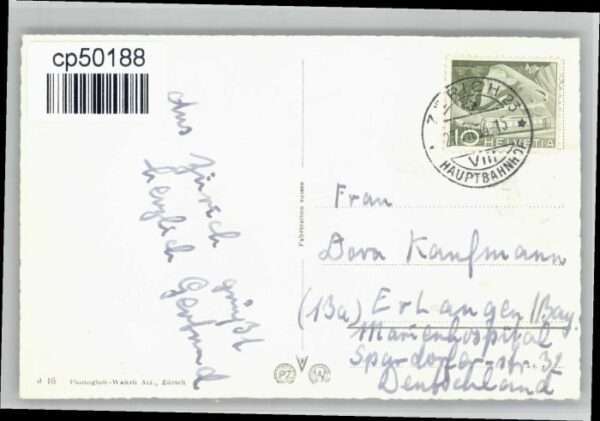 cp50188
Aus Zürich
grüßt
herzlich
Gertrud
ZÜRICH 23
VIII
HAUPTBAHNHOF
10 HELVETIA
Fabrication suisse
Frau
Dora Kaufmann
(13a) Erlangen/Bay.
Marienhospital
Spardorfer-str. 32
Deutschland
J 16 Photoglob-Wehrli AG., Zürich
PZ